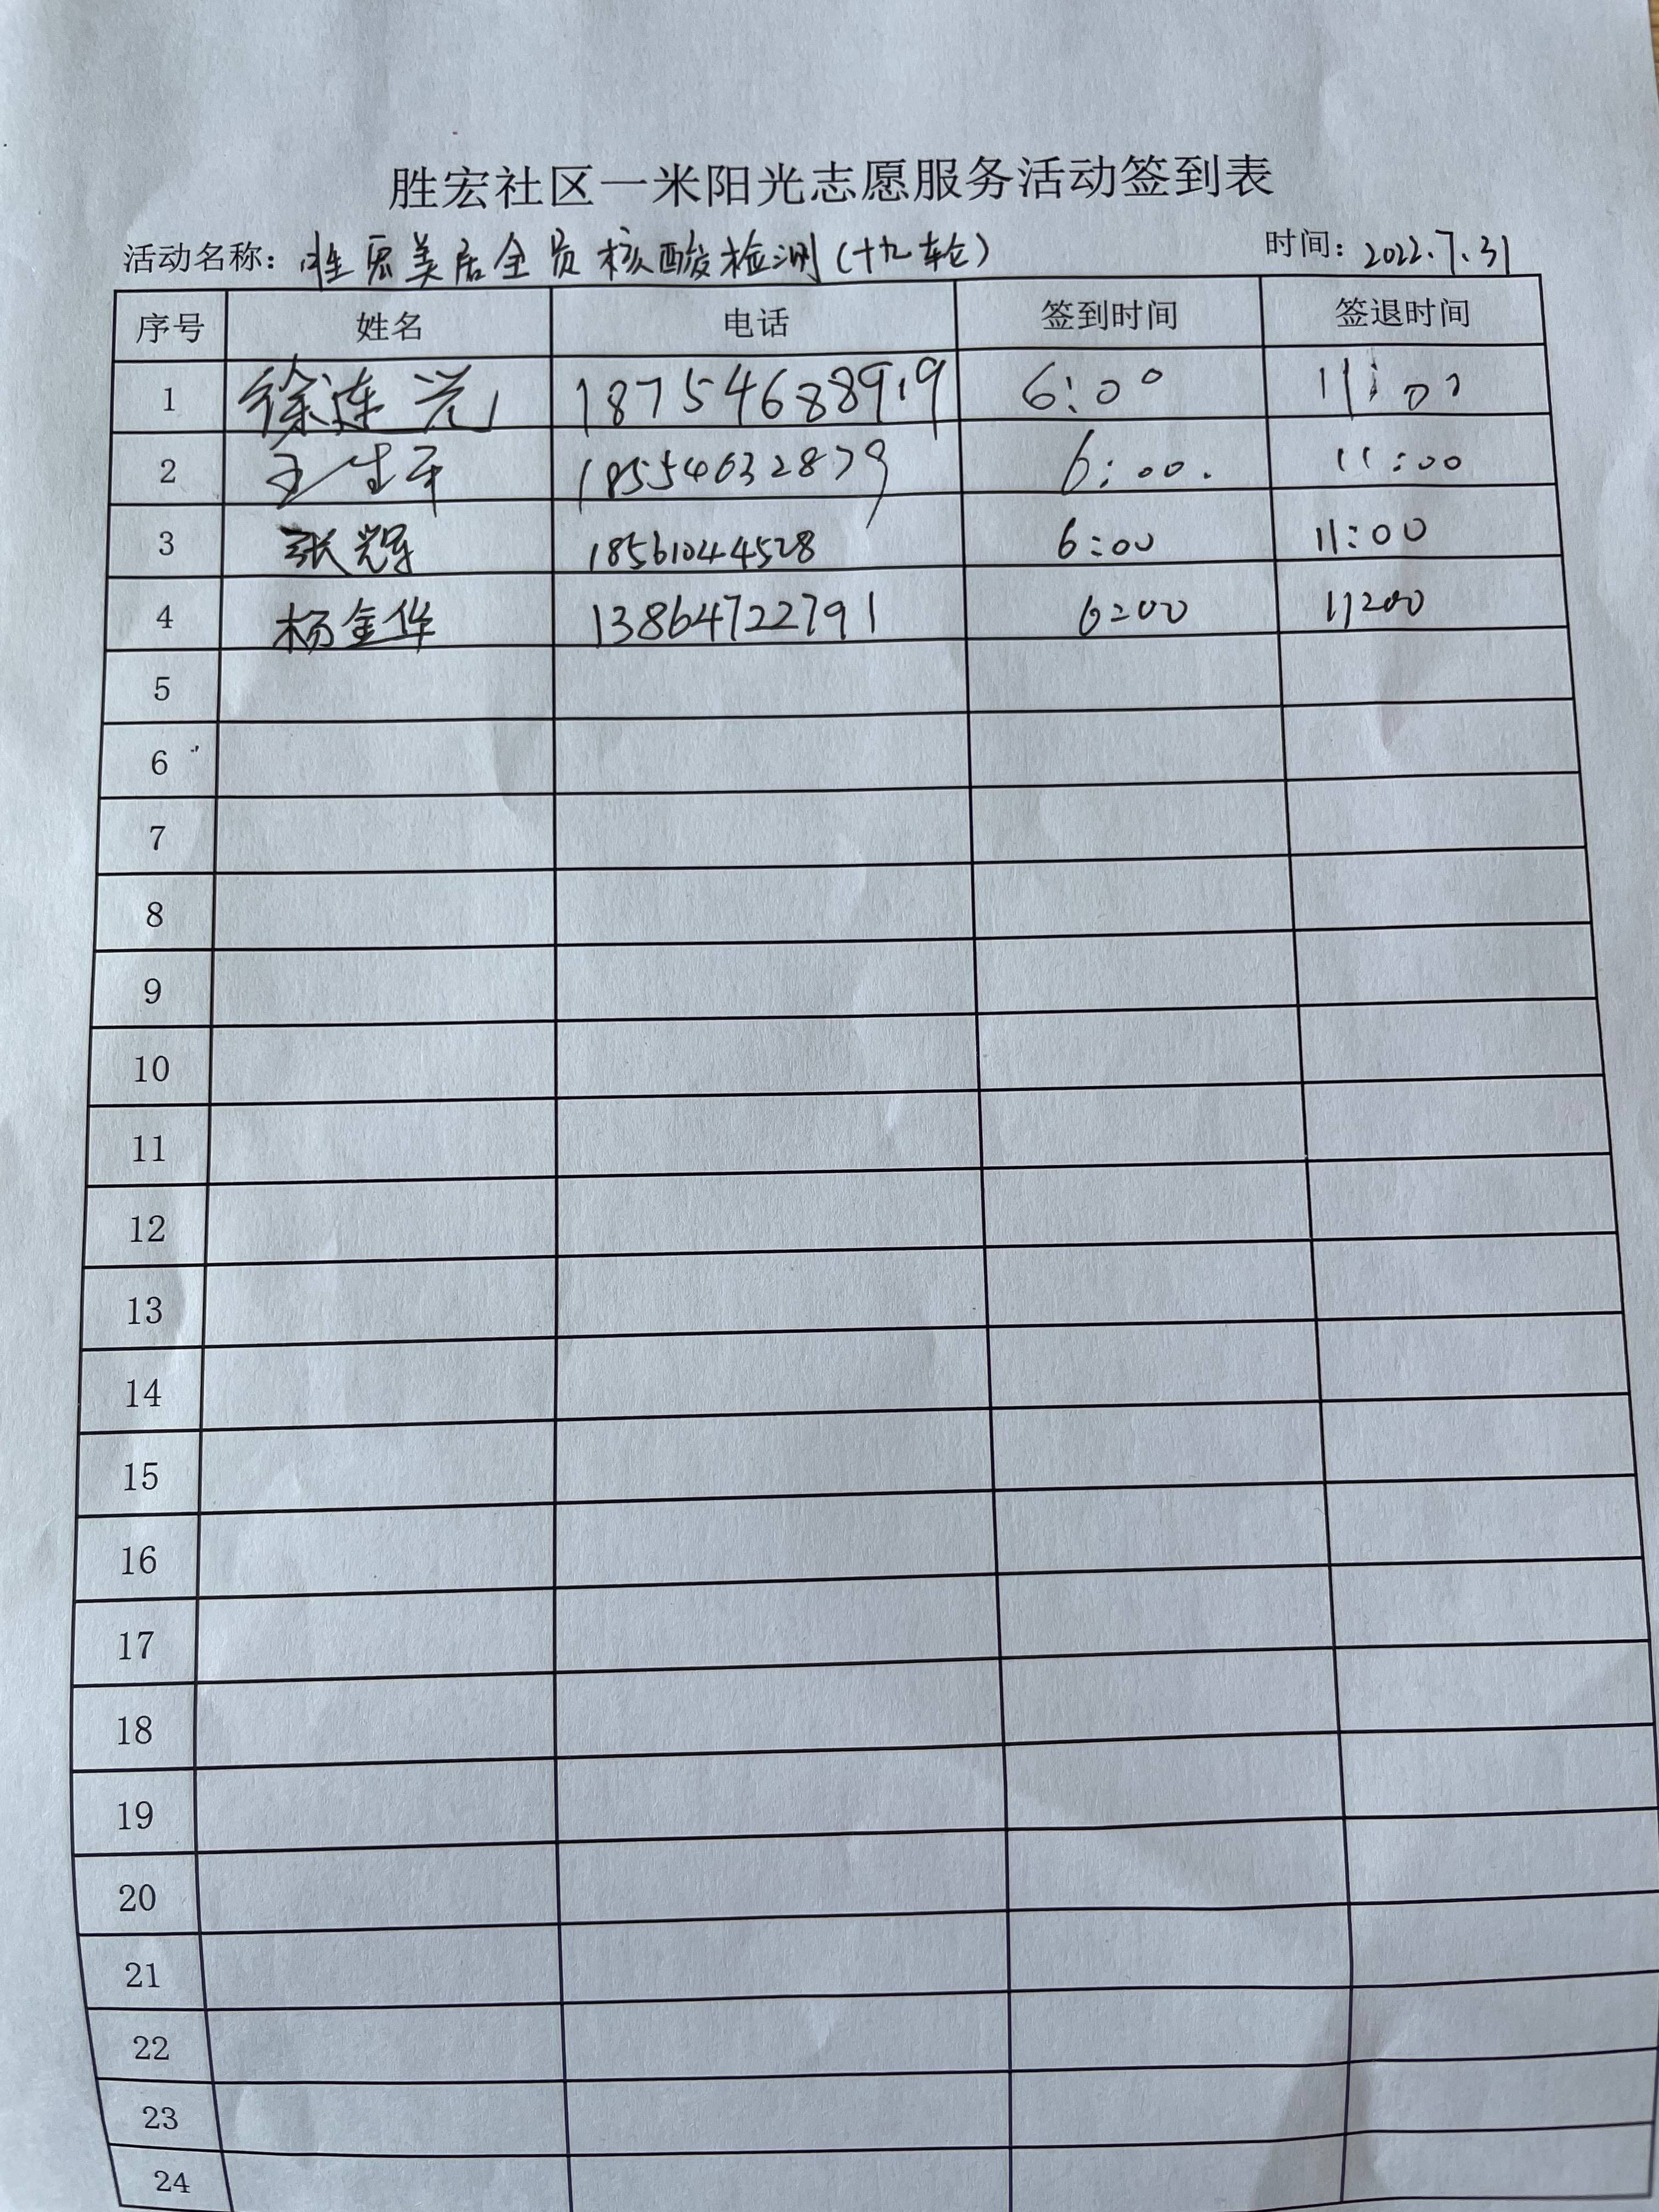 胜宏社区一米阳光志愿服务活动签到表
活动名称：胜宏美居全员核酸检测（十九轮） 时间：2022.7.31
序号 姓名 电话 签到时间 签退时间
1 徐连光 18754688919 6:00 11:00
2 王生平 18554632879 6:00. 11:00
3 张辉 18561044528 6:00 11:00
4 杨金华 13864722791 6:00 11:00
5
6
7
8
9
10
11
12
13
14
15
16
17
18
19
20
21
22
23
24